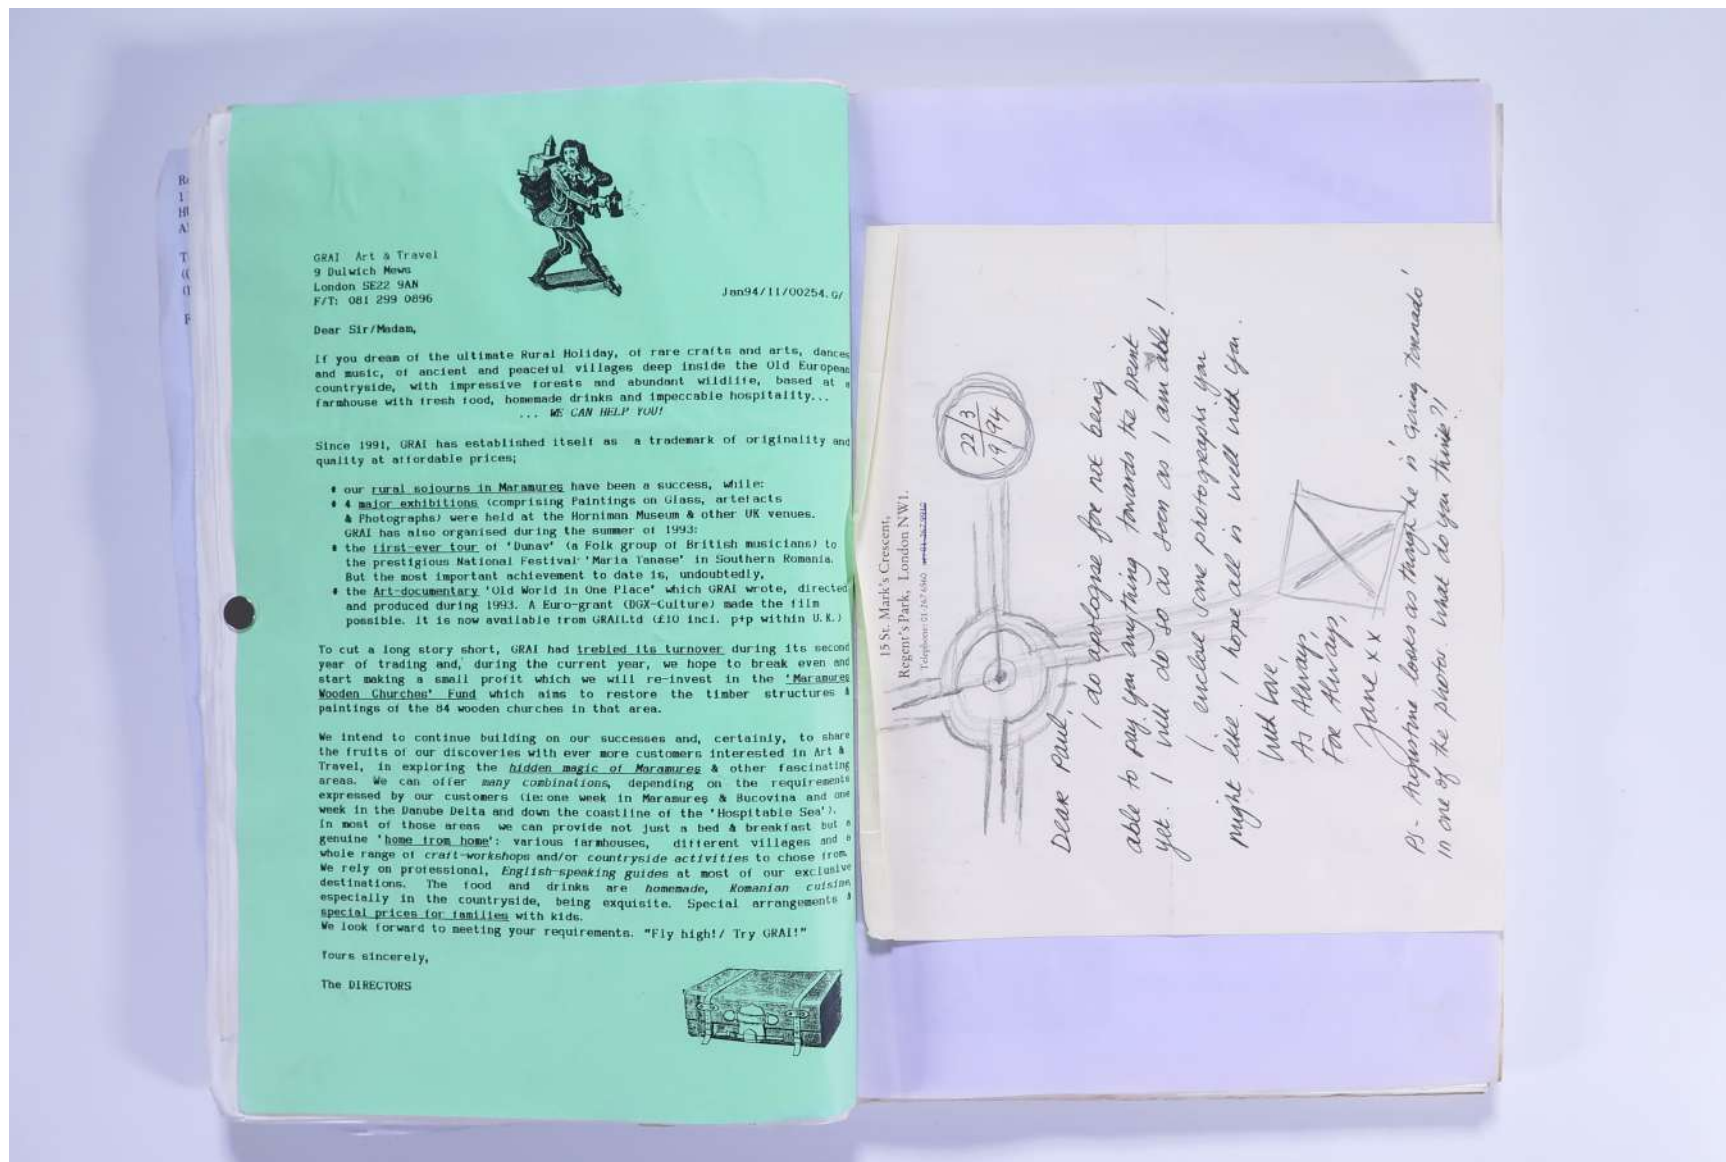 GRAI Art & Travel
9 Dulwich Mews
London SE22 9AN
F/T: 081 299 0896
Jan94/11/00254.G/
Dear Sir/Madam,
If you dream of the ultimate Rural Holiday, of rare crafts and arts, dances
and music, of ancient and peaceful villages deep inside the Old European
countryside, with impressive forests and abundant wildlife, based at a
farmhouse with fresh food, homemade drinks and impeccable hospitality...
... WE CAN HELP YOU!
Since 1991, GRAI has established itself as a trademark of originality and
quality at affordable prices;
* our rural sojourns in Maramures have been a success, while:
* 4 major exhibitions (comprising Paintings on Glass, artefacts
& Photographs) were held at the Horniman Museum & other UK venues.
GRAI has also organised during the summer of 1993:
* the first-ever tour of 'Dunav' (a Folk group of British musicians) to
the prestigious National Festival 'Maria Tanase' in Southern Romania.
But the most important achievement to date is, undoubtedly,
* the Art-documentary 'Old World in One Place' which GRAI wrote, directed
and produced during 1993. A Euro-grant (DGX-Culture) made the film
possible. it is now available from GRAILtd (£10 incl. p+p within U.K.)
To cut a long story short, GRAI had trebled its turnover during its second
year of trading and, during the current year, we hope to break even and
start making a small profit which we will re-invest in the 'Maramures
Wooden Churches' Fund which aims to restore the timber structures &
paintings of the 84 wooden churches in that area.
We intend to continue building on our successes and, certainly, to share
the fruits of our discoveries with ever more customers interested in Art &
Travel, in exploring the hidden magic of Maramures & other fascinating
areas. We can offer many combinations, depending on the requirements
expressed by our customers (ie:one week in Maramures & Bucovina and one
week in the Danube Delta and down the coastline of the 'Hospitable Sea').
In most of those areas we can provide not just a bed & breakfast but a
genuine 'home from home': various farmhouses, different villages and a
whole range of craft-workshops and/or countryside activities to chose from.
We rely on professional, English-speaking guides at most of our exclusive
destinations. The food and drinks are homemade, Romanian cuisine,
especially in the countryside, being exquisite. Special arrangements &
special prices for families with kids.
We look forward to meeting your requirements. "Fly high!/ Try GRAI!"
Yours sincerely,
The DIRECTORS
15 St. Mark's Crescent,
Regent's Park, London NW1.
Telephone: 01-267 6560
22/3
19/94
Dear Paul,
I do apologise for not being
able to pay you anything towards the print
yet. I will do so as soon as I am able!
I enclose some photographs you
might like. I hope all is well with you.
With love,
As Always,
For Always,
Jane x x
PS - Augustine looks as though he is 'going Tornado'
in one of the photos. What do you think?!